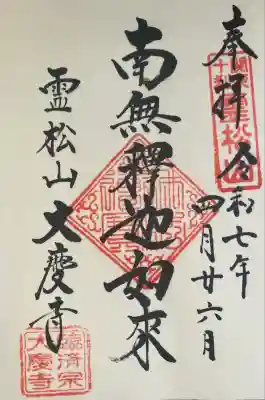 奉拝 令和七年
四月廿六月
南無釋迦如來
霊松山 大慶寺
臨済宗
大慶寺